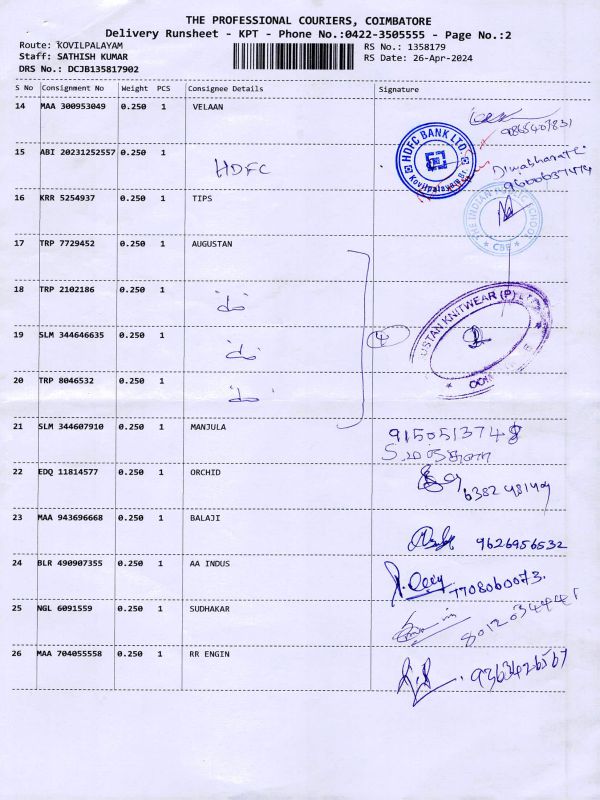 THE PROFESSIONAL COURIERS, COIMBATORE
Delivery Runsheet - KPT - Phone No.:0422-3505555 - Page No.:2
Route: KOVILPALAYAM
RS No.: 1358179
Staff: SATHISH KUMAR
RS Date: 26-Apr-2024
DRS No.: DCJB135817902
S No Consignment No Weight PCS Consignee Details Signature
14 MAA 300953049 0.250 1 VELAAN
9865407831
15 ABI 20231252557 0.250 1 HDFC
HDFC BANK LTD.
Kovilpalayam Br.
16 KRR 5254937 0.250 1 TIPS
THE INDIAN PUBLIC SCHOOL
CBE
17 TRP 7729452 0.250 1 AUGUSTAN
18 TRP 2102186 0.250 1
19 SLM 344646635 0.250 1
20 TRP 8046532 0.250 1
4
KNITWEAR (P)
21 SLM 344607910 0.250 1 MANJULA 9150513748
22 EDQ 11814577 0.250 1 ORCHID
23 MAA 943696668 0.250 1 BALAJI 9626956532
24 BLR 490907355 0.250 1 AA INDUS 7708060073.
25 NGL 6091559 0.250 1 SUDHAKAR
26 MAA 704055558 0.250 1 RR ENGIN 9363426567